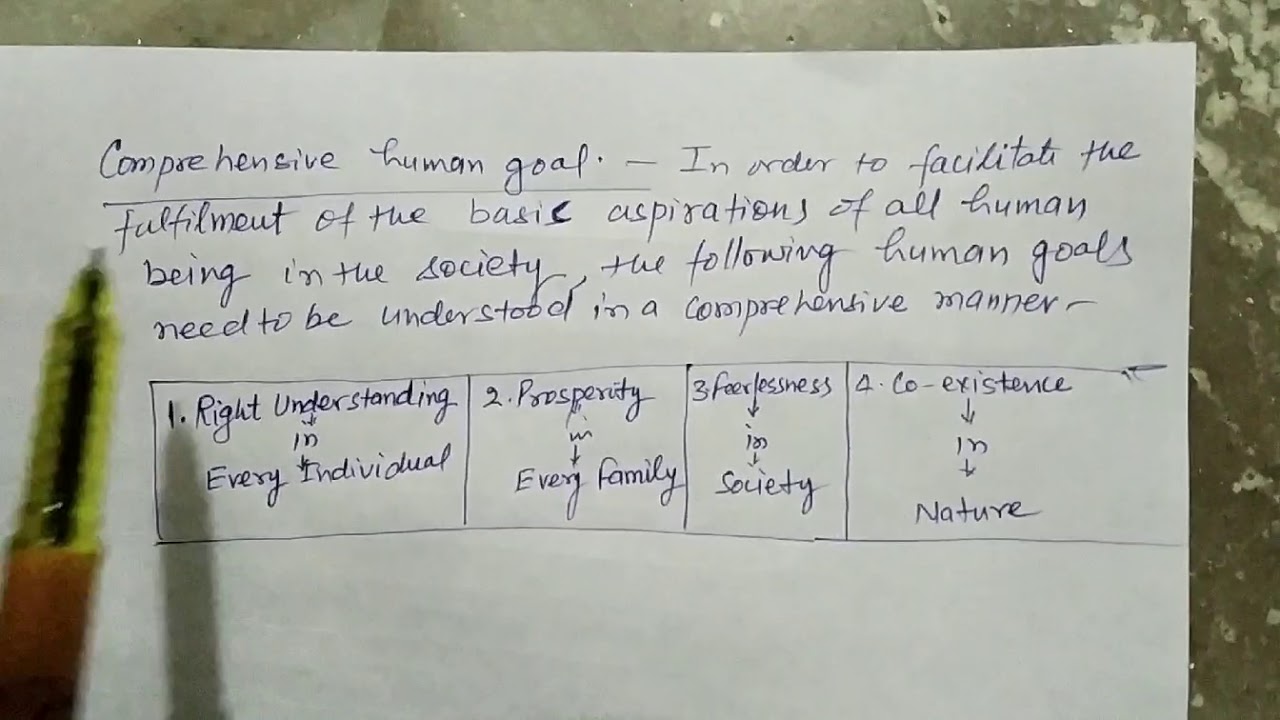 Comprehensive human goal. – In order to facilitate the
fulfilment of the basic aspirations of all human
being in the society, the following human goals
need to be understood in a comprehensive manner –
1. Right Understanding
↓
in
↓
Every Individual
2. Prosperity
in
↓
Every family
3 Fearlessness
↓
in
↓
Society
4. Co-existence
↓
in
↓
Nature